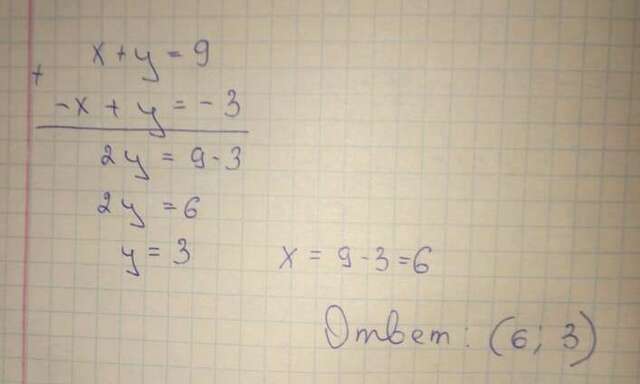 x + y = 9
+
-x + y = -3
2y = 9 - 3
2y = 6
y = 3 x = 9 - 3 = 6
Ответ: (6; 3)